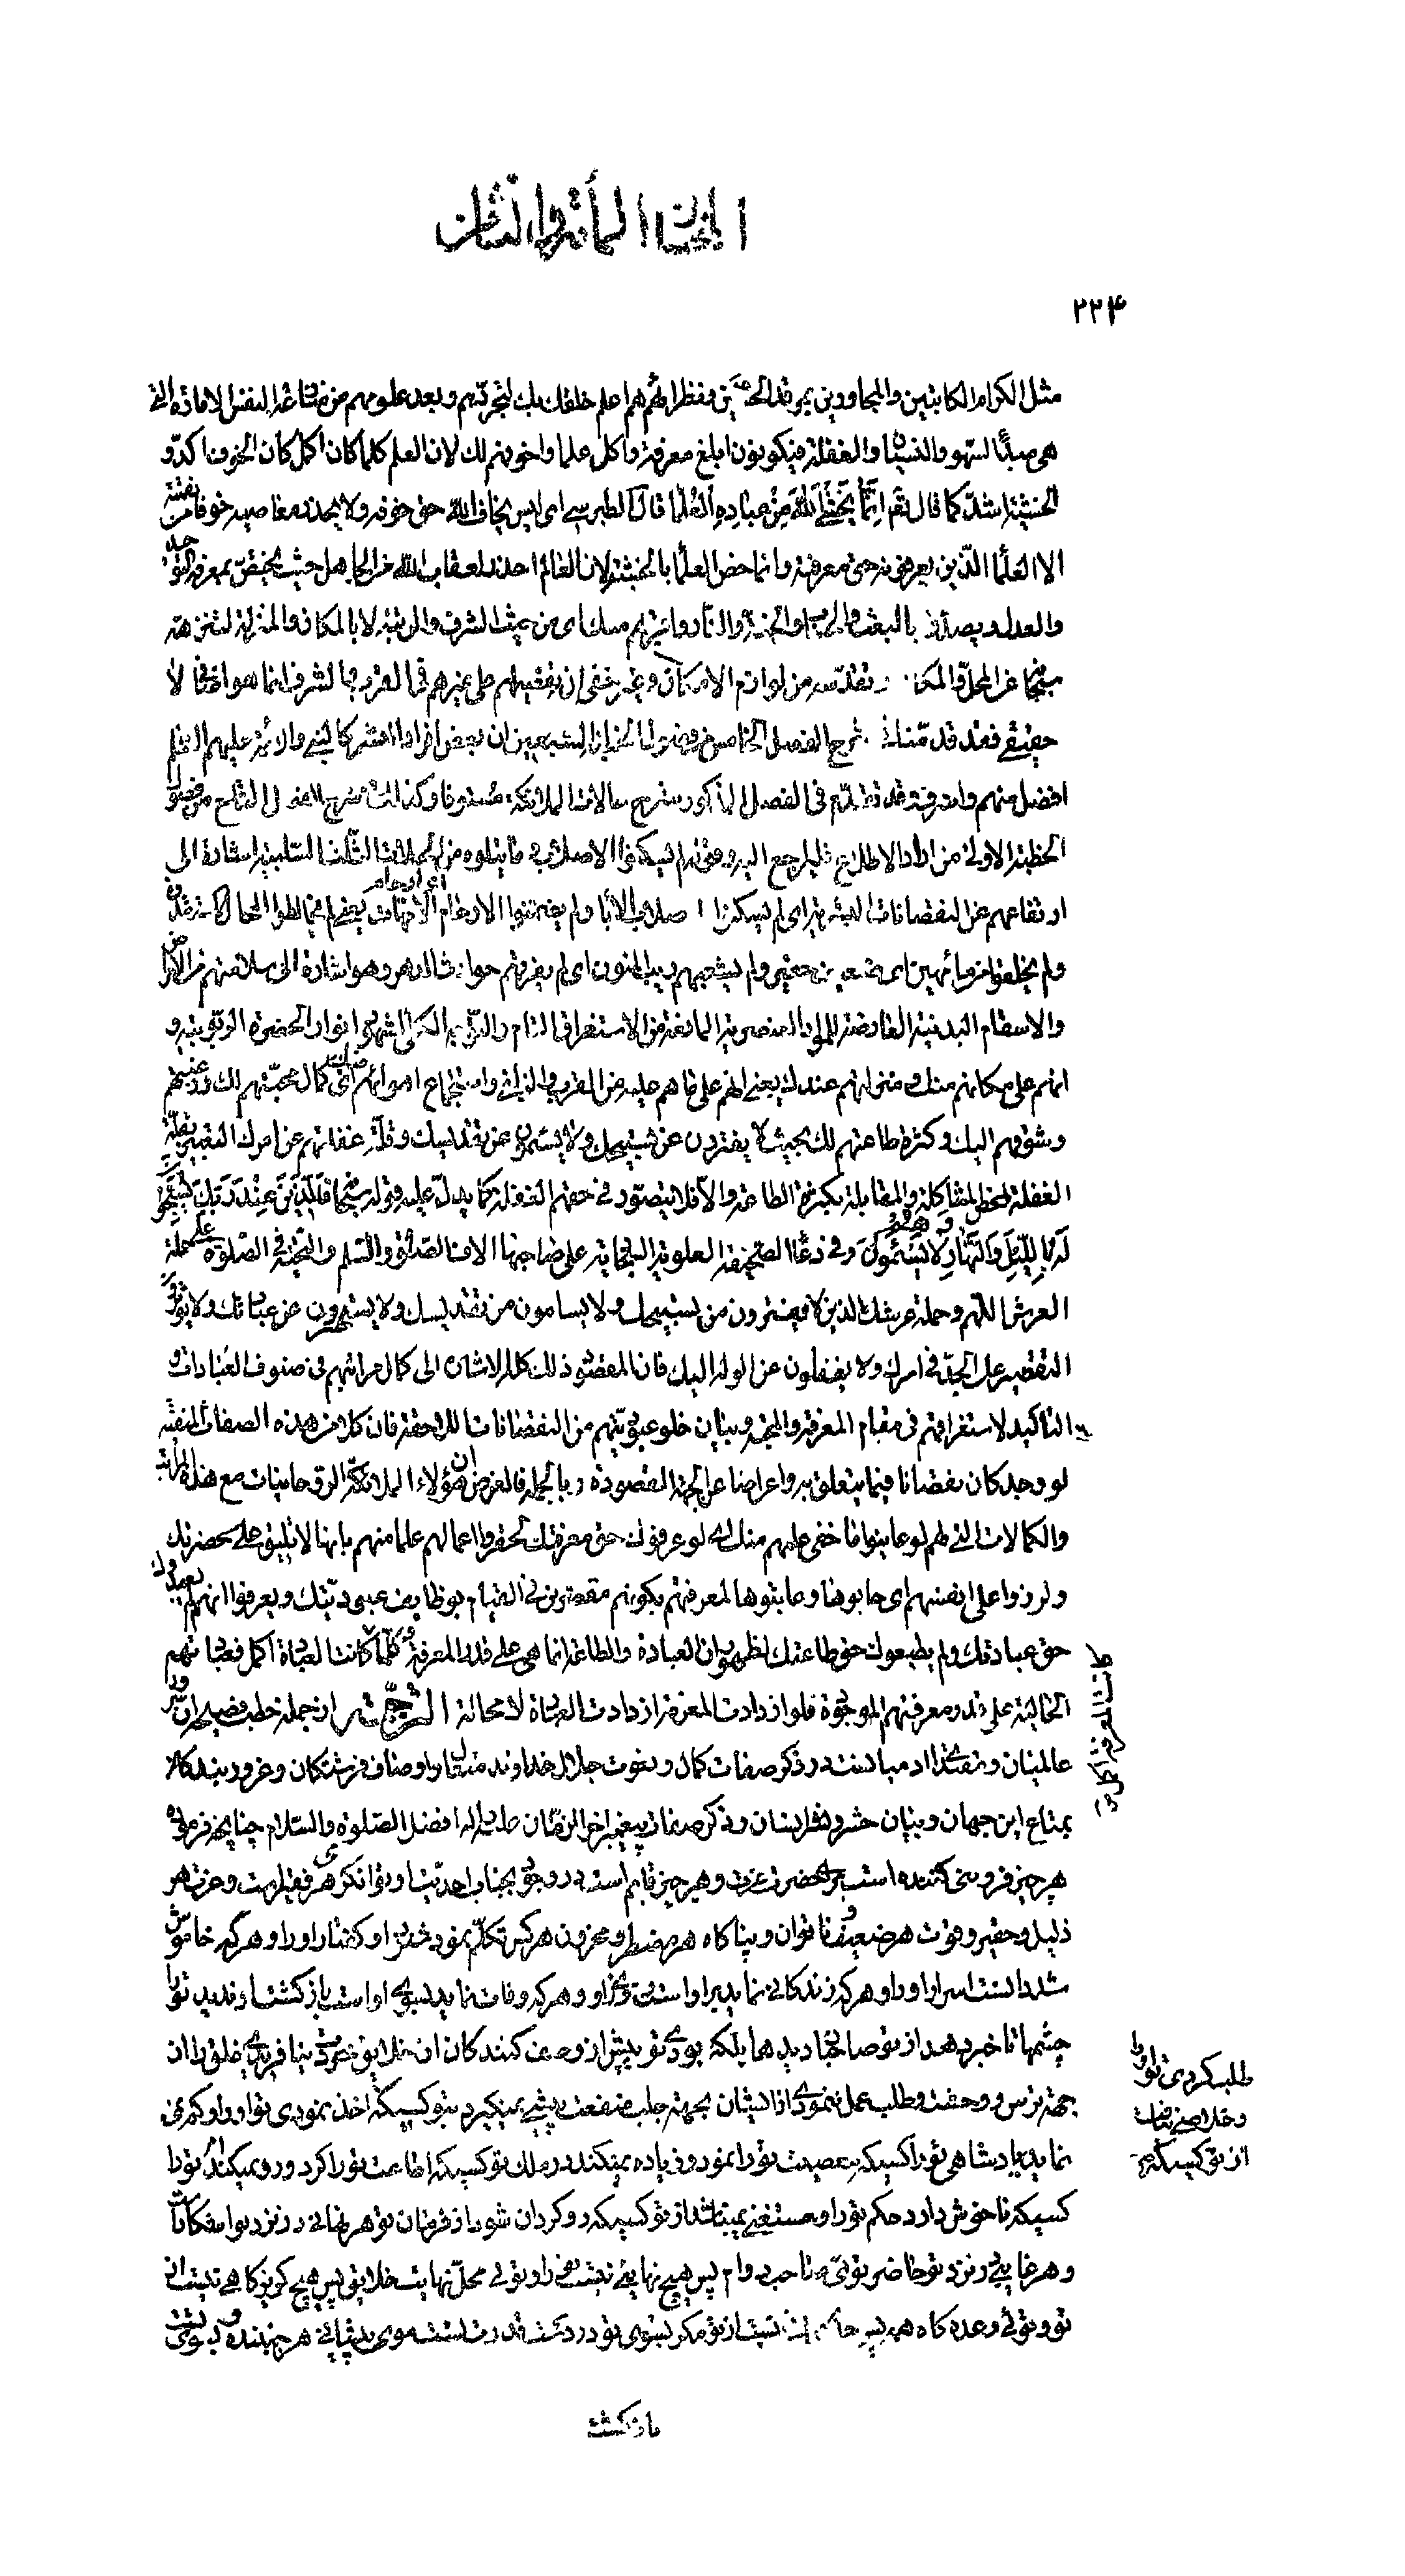 المختار المأة والثامن
٢٢۴
مثل الكرام الكاتبين والمجاورين بمرقد الحسين ونظرائهم هم اعلم خلقك بك لتجردهم وبعد علومهم من منازعة النفس الامارة التي
هي مبدأ السهو والنسيان والغفلة فيكونون ابلغ معرفة واكمل علما واخوفهم لك لان العلم كلما كان اكمل كان الخوف اكد و
الخشية اشد كما قال تعالى اِنَّمَا يَخْشَى اللهَ مِنْ عِبَادِهِ الْعُلَمَاءُ قال الطبرسي اى ليس يخاف الله حق خوفه ولا يحذر معاصيه خوفا من نقمته
الا العلماء الذين يعرفونه حق معرفته وانما خص العلماء بالخشية لان العالم احذر لعقاب الله من الجاهل حيث يختص بمعرفة التوحيد
والعدل ويصدق بالبعث والحساب والجنة والنار واقربهم منك اى من حيث الشرف والرتبة لا بالمكان والمنزلة لتنزهه
سبحانه عن المحل والمكان وتقدسه من لوازم الامكان وغير خفي ان تفضيلهم على غيرهم في القرب والشرف انما هو اضافي لا
حقيقي فقد قدمنا في شرح الفصل الخامس من فصول الخطبة التسعين ان بعض افراد البشر كالنبي والائمة عليهم السلم
افضل منهم واشرف وقد تقدم في الفصل المذكور شرح حالات الملائكة مستوفا وكذلك في شرح الفصل التاسع من فصول
الخطبة الاولى من اراد الاطلاع فليرجع اليه وقوله لم يسكنوا الاصلاب وما يتلوه من الجملات الثلث السلبية اشارة الى
ارتفاعهم عن النقصانات البشرية اى لم يسكنوا اصلاب الاباء ولم يضمنوا الارحام اى ارحام الامهات يعني لم يخالطوا المحال المستقذرة
ولم يخلقوا من ماء مهين اى ضعيف حقير ولم يشعبهم ريب المنون اى لم يفرقهم حوادث الدهر وهو اشارة الى سلامتهم من الامراض
والاسقام البدنية العارضة للمواد العنصرية المانعة من الاستغراق التام والتوجه الكلي الى شهود انوار الحضرة الربوبية و
انهم على مكانهم منك ومنزلتهم عندك يعني انهم على ما هم عليه من القرب والزلفى واستجماع اهوائهم فيك اى كمال محبتهم لك ورغبتهم
وشوقهم اليك وكثرة طاعتهم لك بحيث لا يفترون عن تسبيحك ولا يسئمون عن تقديسك وقلة غفلتهم عن امرك التعبير بقلة
الغفلة لمحض المشاكلة والمقابلة بكثرة الطاعة والا فلا يتصور في حقهم الغفلة كما يدل عليه قوله سبحانه فَالَّذِينَ عِنْدَ رَبِّكَ يُسَبِّحُونَ
لَهُ بِاللَّيْلِ وَالنَّهَارِ وَهُمْ لَا يَسْئَمُونَ وفي دعاء الصحيفة العلوية السجادية على صاحبها الاف الصلوة والسلم والتحية في الصلوة على حملة
العرش اللهم وحملة عرشك الذين لا يفترون من تسبيحك ولا يسامون من تقديسك ولا يستحسرون عن عبادتك ولا يؤثرون
التقصير على الجد في امرك ولا يغفلون عن الوله اليك فان المقصود ذلك كله الاشارة الى كمال مراتبهم في صنوف العبادات و
التاكيد لاستغراقهم في مقام المعرفة والمحبة وبيان خلو عبوديتهم من النقصانات اللاحقة فان كلا من هذه الصفات المنفية
لو وجد كان نقصانا فيما يتعلق به واعراضا عن الجهة المقصودة وبالجملة فالغرض ان هؤلاء الملائكة الروحانيات مع هذه المراتب
والكمالات التي لهم لو عاينوا ما خفي عليهم منك اى لو عرفوك حق معرفتك لحقروا اعمالهم علما منهم بانها لا تليق على حضرتك
ولزروا على انفسهم اى عابوها وعاتبوها لمعرفتهم بكونهم مقصرين في القيام بوظايف عبوديتك ويعرفوا انهم لم يعبدوك
حق عبادتك ولم يطيعوك حق طاعتك لظهور ان العبادة والطاعة انما هي على قدر المعرفة وكلما كانت المعرفة اكمل كانت العبادة اكمل فعباداتهم
الحالية على قدر معرفتهم الموجودة فلو ازدادت المعرفة ازدادت العبادة لا محالة الترجمة از جمله خطب فصيحه ان سرور
عالميان ومقتداى ادميانست در ذكر صفات كمال ونعوت جلال خداوند متعال واوصاف فرشتكان وغرور بندكان
بمتاع اين جهان وبيان حشر ونشر ايشان وذكر صفات پيغمبر اخر الزمان عليه واله افضل الصلوة والسلام چنانچه فرموده
هر چيز فروتنى كننده است بر حضرت عزت وهر چيز قايم است در وجود بجناب احديت او توانكرى هر فقير است وعزت هر
ذليل وحقير وقوت هر ضعيف وناتوان وپناكاه هر مضطر ومحزون هر كس تكلم نمود شنود او گفتار او را وهر كه خاموش
شد دانست اسرار او را وهر كه زندكانى نمايد بر اوست روزى او وهر كه وفات نمايد بسوى اوست بازكشت او نديد تو را
چشمها تا خبر دهند از تو صاحبان ديدها بلكه بودى تو پيش از وصف كنندكان از خلايق خود نيافريدى خلق را از
جهة ترس ووحشت وطلب عمل ننمودى از ايشان بجهة جلب منفعت پيشى نميكيرد بتو كسيكه طلب كردى تو او را وخلاصى نيافت از تو كسيكه اخذ نمودى تو او را وكم نمى
نمايد پادشاهى تو را كسيكه معصيت تو را نمود وزياده نميكند در ملك تو كسيكه اطاعت تو را كرد ورد نميكند امر تو را
كسيكه ناخوش دارد حكم تو را ومستغنى نميباشد از تو كسيكه روكردان شود از فرمان تو هر نهانى در نزد تو اشكار است
وهر غايبى در نزد تو حاضر توئى صاحب دوام پس هيچ نهايتى نيست تو را وتوئى محل نهايت خلايق پس هيچ كريزكاهى نيست از
تو وتوئى وعده كاه همه پس نجات نيست از تو مكر بسوى تو در دست قدرت تست موى پيشانى هر جنبنده وبسوى تست
بازكشت